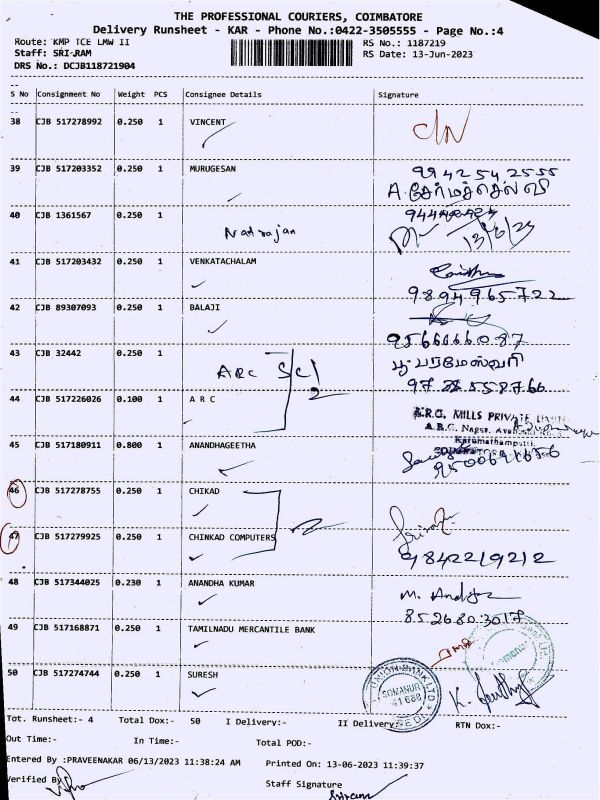 THE PROFESSIONAL COURIERS, COIMBATORE
Delivery Runsheet - KAR - Phone No.:0422-3505555 - Page No.:4
Route: KMP TCE LMW II RS No.: 1187219
Staff: SRI RAM RS Date: 13-Jun-2023
DRS No.: DCJB118721904
S No Consignment No Weight PCS Consignee Details Signature
38 CJB 517278992 0.250 1 VINCENT
39 CJB 517203352 0.250 1 MURUGESAN 99425 42555
40 CJB 1361567 0.250 1 Natrajan 13/6/23
41 CJB 517203432 0.250 1 VENKATACHALAM
9894965722
42 CJB 89307093 0.250 1 BALAJI
9566666087
43 CJB 32442 0.250 1 ARC SCI 2 பரமேஸ்வரி
44 CJB 517226026 0.100 1 A R C
A.R.C. MILLS PRIVATE
A.R.C. Nagar,
Karumathampatti,
45 CJB 517180911 0.800 1 ANANDHAGEETHA
46 CJB 517278755 0.250 1 CHIKAD
47 CJB 517279925 0.250 1 CHINKAD COMPUTERS
9842219212
48 CJB 517344025 0.230 1 ANANDHA KUMAR
8526803017
49 CJB 517168871 0.250 1 TAMILNADU MERCANTILE BANK TMB
50 CJB 517274744 0.250 1 SURESH
UNION BANK LTD
SOMANUR
Tot. Runsheet:- 4 Total Dox:- 50 I Delivery:- II Delivery:- RTN Dox:-
Out Time:- In Time:- Total POD:-
Entered By :PRAVEENAKAR 06/13/2023 11:38:24 AM Printed On: 13-06-2023 11:39:37
Verified By Staff Signature
Sriram